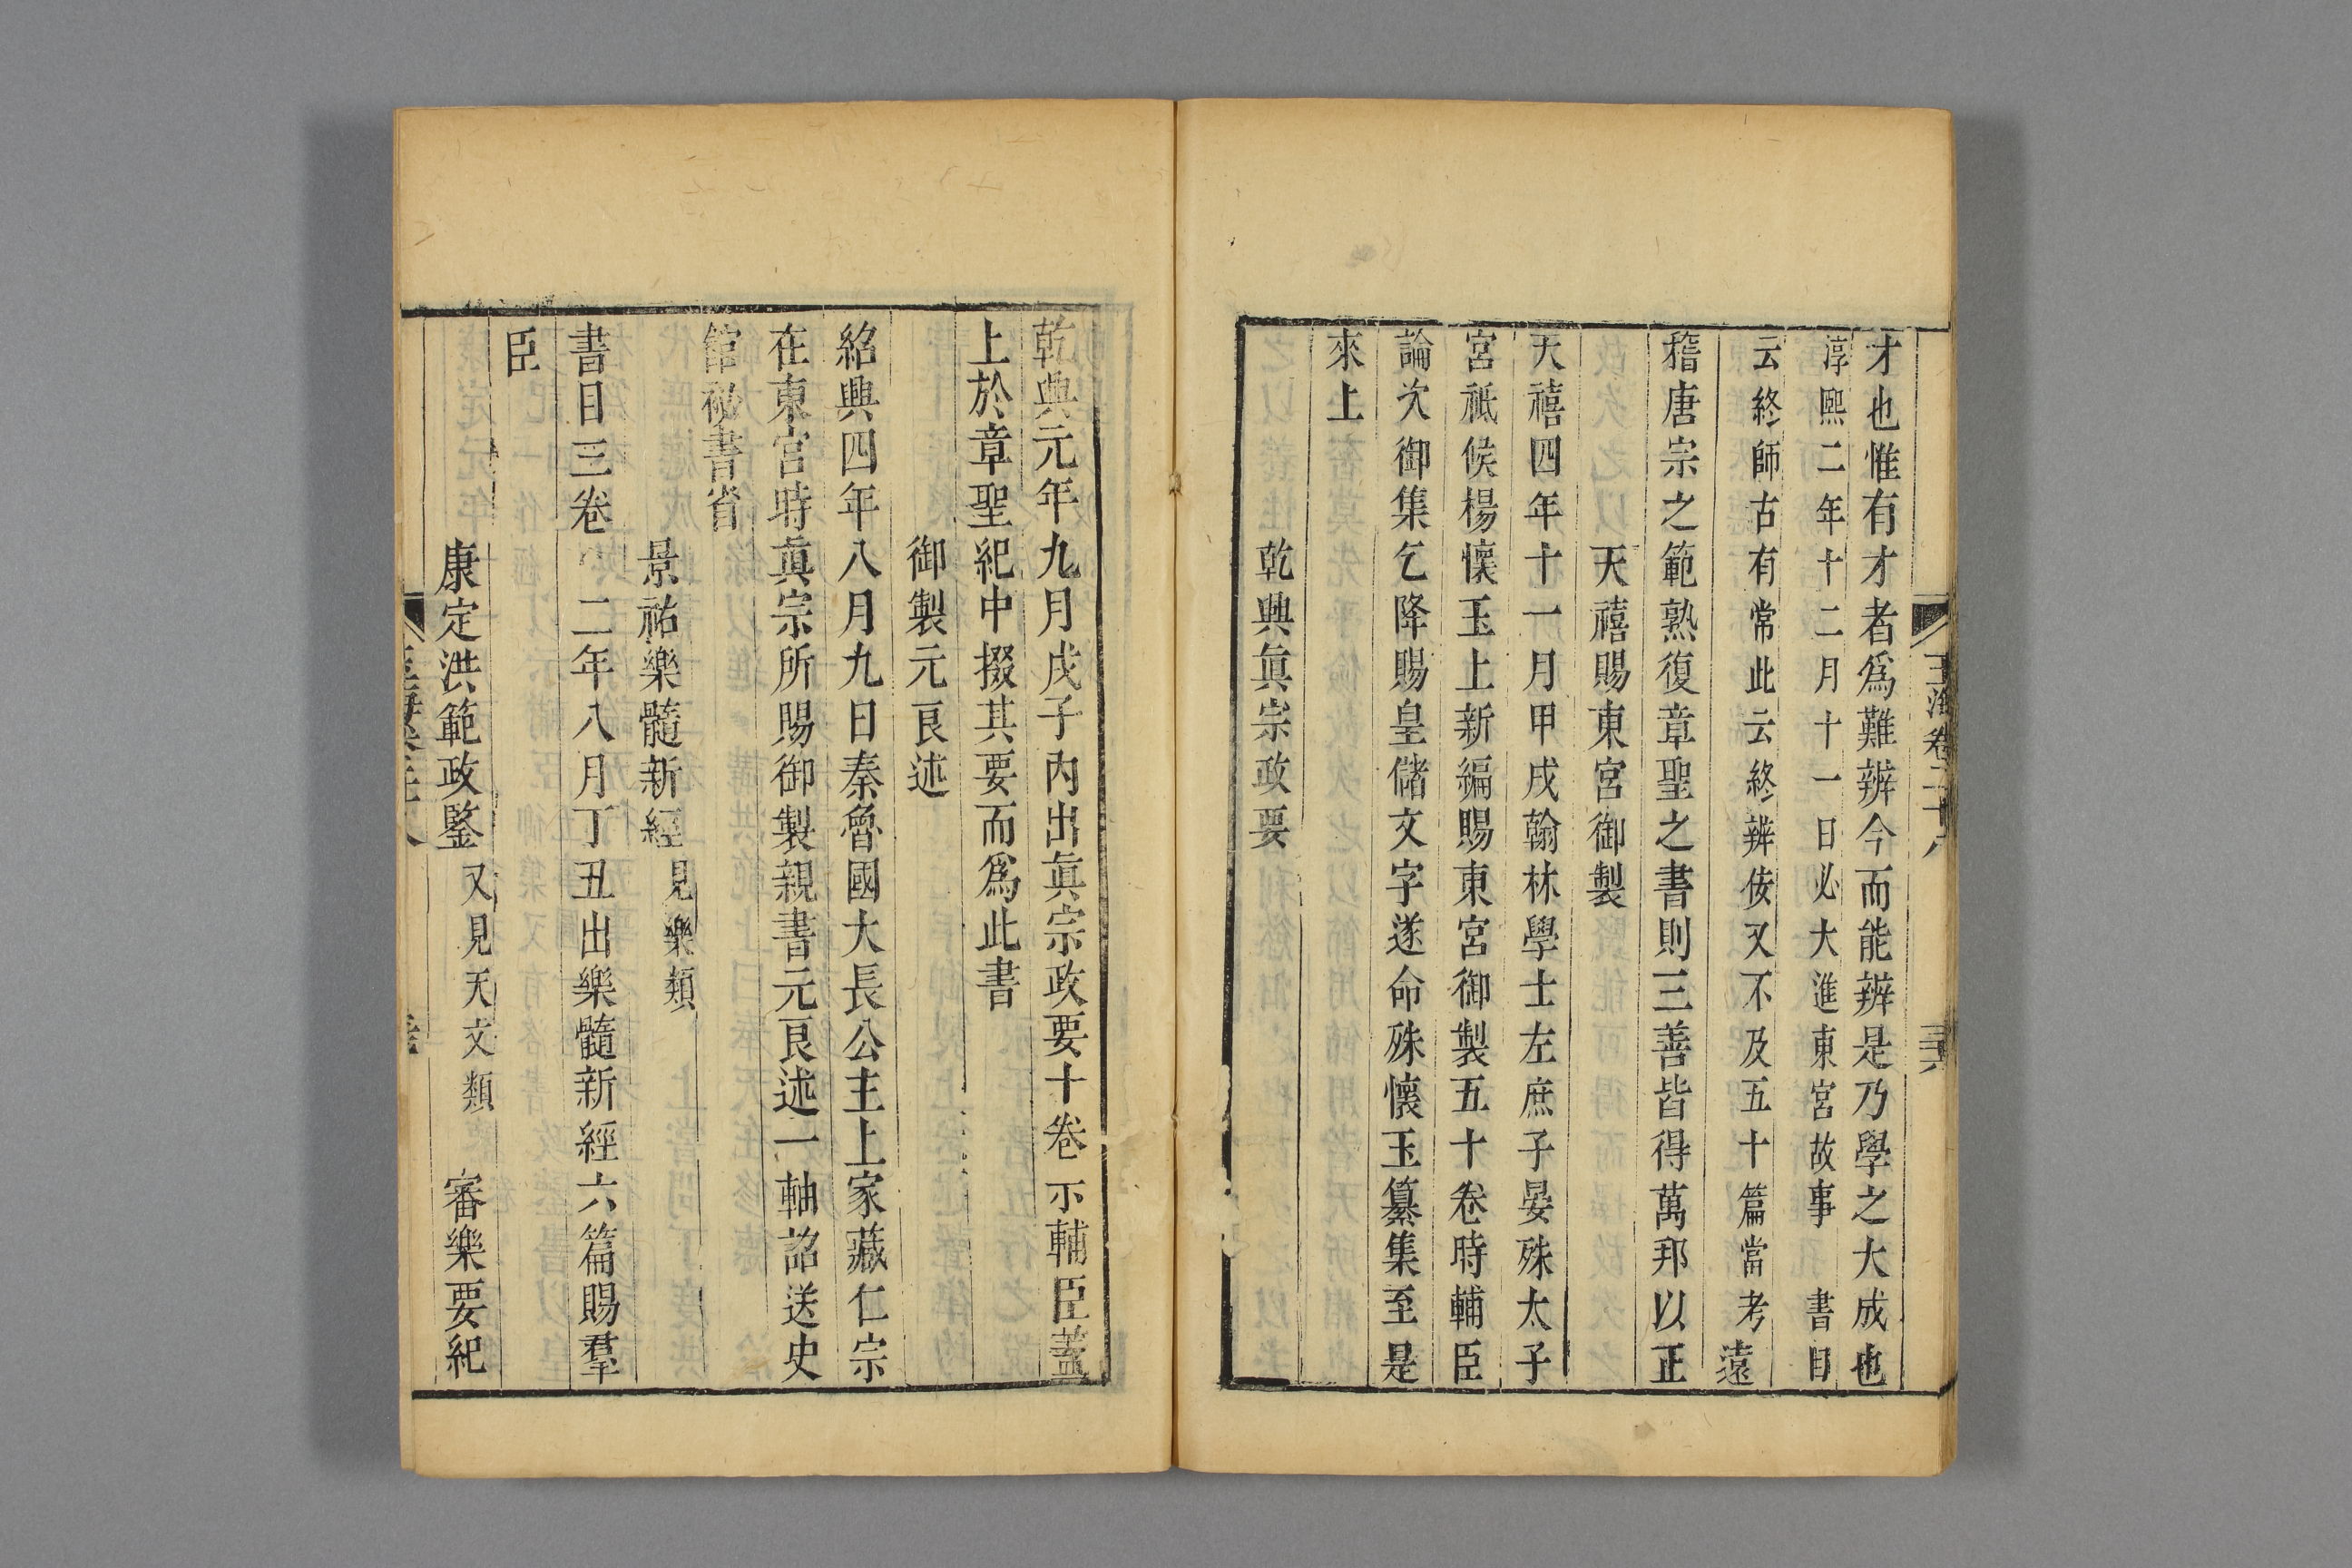 玉海卷二十八
三六
才也惟有才者爲難辨今而能辨是乃學之大成也
淳熙二年十二月十一日必大進東宮故事 書目
云終師古有常此云終辨佞又不及五十篇當考 遠
稽唐宗之範熟復章聖之書則三善皆得萬邦以正
天禧賜東宮御製
天禧四年十一月甲戌翰林學士左庶子晏殊太子
宮祗候楊懷玉上新編賜東宮御製五十卷時輔臣
論次御集乞降賜皇儲文字遂命殊懷玉纂集至是
來上
乾興眞宗政要
乾興元年九月戊子内出眞宗政要十卷示輔臣蓋
上於章聖紀中掇其要而爲此書
御製元良述
紹興四年八月九日秦魯國大長公主上家藏仁宗
在東宮時眞宗所賜御製親書元良述一軸詔送史
館祕書省
景祐樂髓新經 見樂類
書目三卷 二年八月丁丑出樂髓新經六篇賜羣
臣
康定洪範政鑒 又見天文類 審樂要紀